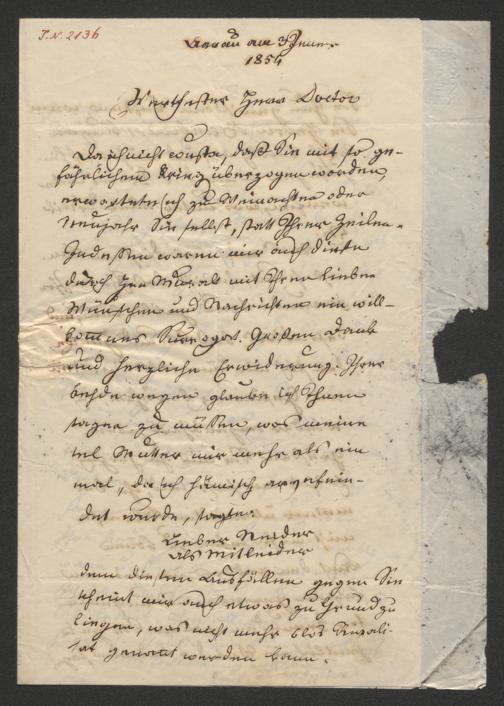 J.N. 2136
Aarau am 3 Jenner
1854
Werthester Herr Doctor
Da ich nicht wusste, daß Sie mit so ge-
fährlichem Krieg überzogen worden,
erwartete ich zu Weinachten oder
Neujahr Sie selbst, statt Ihrer Zeilen.
Indessen waren mir auch diese
durch Herr Muralt mit Ihren lieben
Wünschen und Nachrichten ein will-
kommnes Surrogat. Großen Dank
und herzliche Erwiderung. Ihrer
Fehde wegen glaube ich Ihnen
sagen zu müssen, was meine
sel Mutter mir mehr als ein
mal, da ich hämisch angefein-
det wurde, sagte:
Lieber Neider
als Mitleider
denn diesen Ausfällen gegen Sie
scheint mir auch etwas zu Grund zu
liegen, was nicht mehr blos Rivali-
tät genannt werden kann.